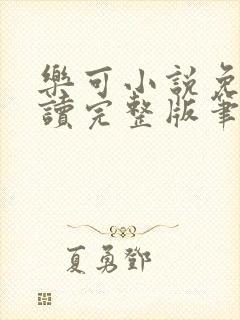 樂可小說免
讀完整版筆
夏勇鄧